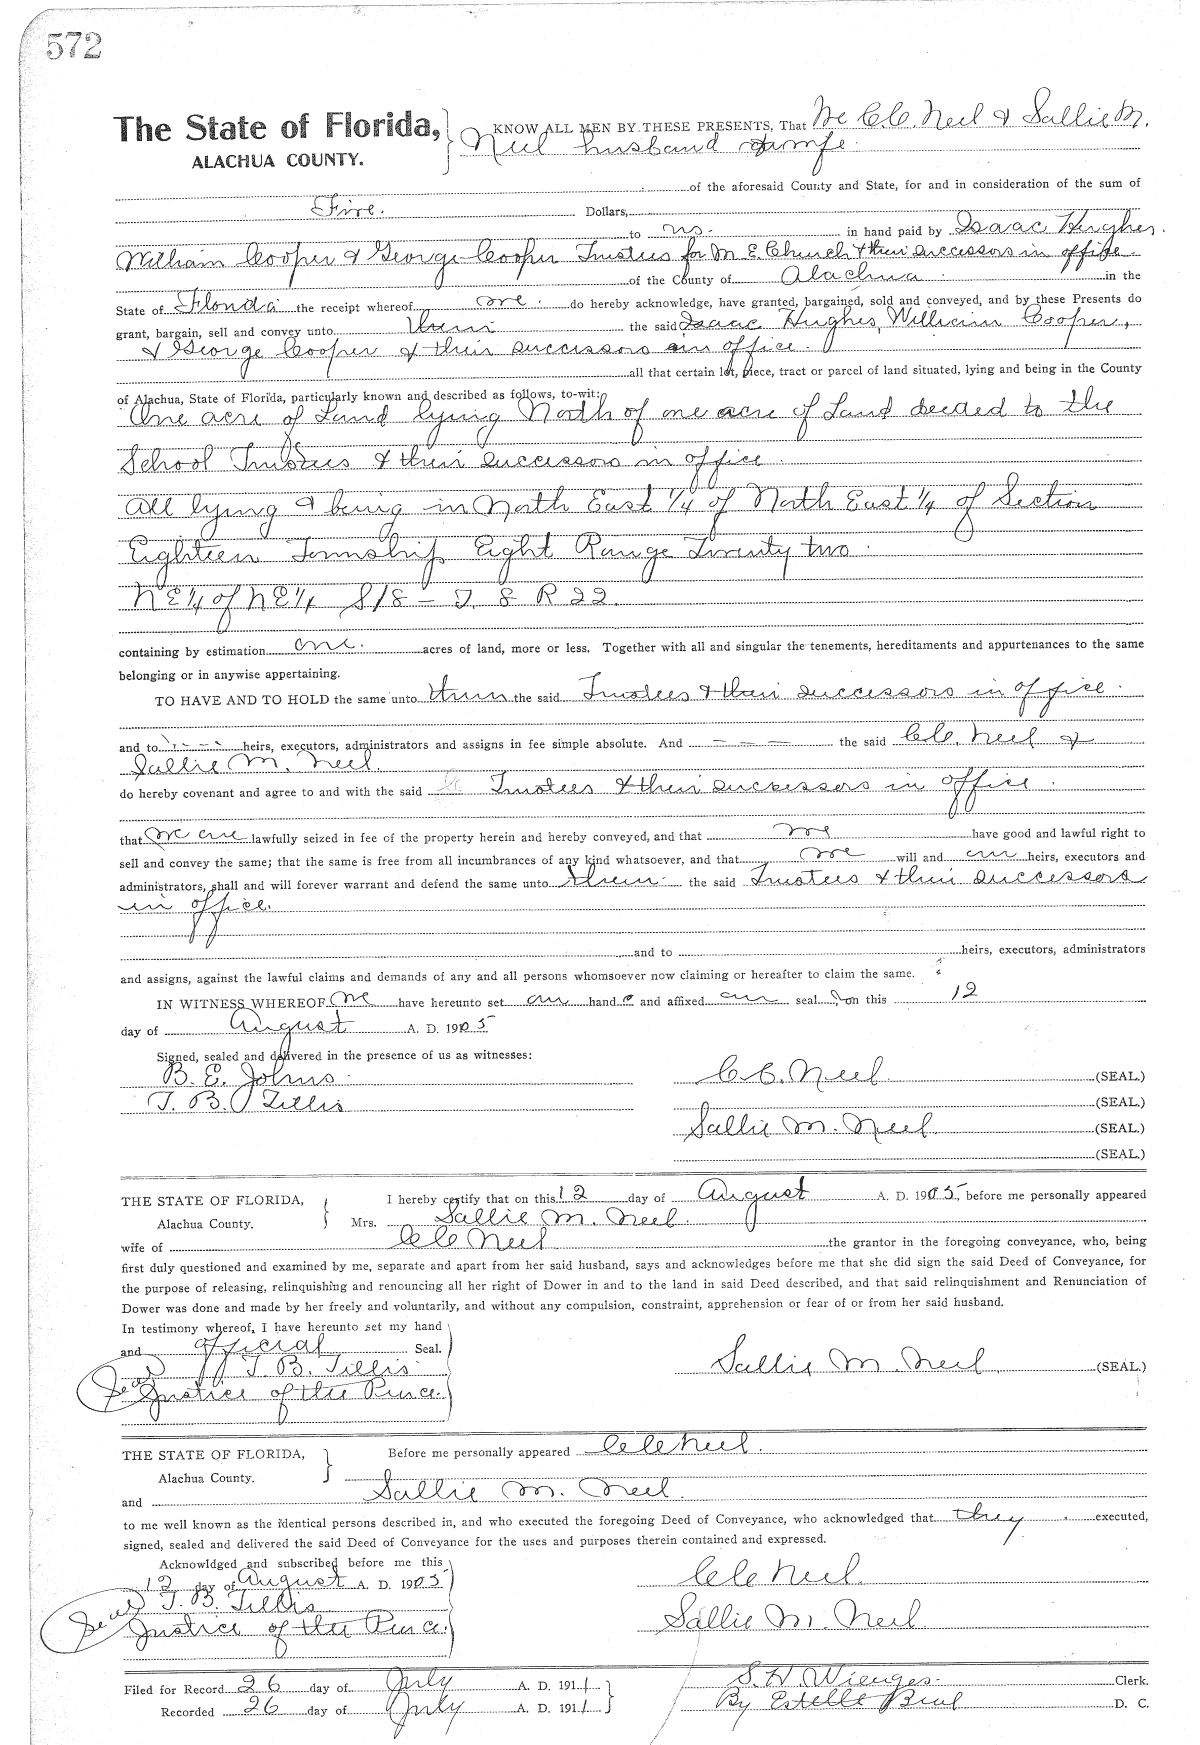 572
The State of Florida, KNOW ALL MEN BY THESE PRESENTS, That We C.C. Neel & Sallie M.
ALACHUA COUNTY. Neel husband & wife
of the aforesaid County and State, for and in consideration of the sum of
Five. Dollars,
to us. in hand paid by Isaac Hughes,
William Cooper & George Cooper Trustees for M. E. Church & their successors in office
of the County of Alachua in the
State of Florida the receipt whereof we do hereby acknowledge, have granted, bargained, sold and conveyed, and by these Presents do
grant, bargain, sell and convey unto them the said Isaac Hughes, William Cooper,
& George Cooper & their successors in office.
all that certain lot, piece, tract or parcel of land situated, lying and being in the County
of Alachua, State of Florida, particularly known and described as follows, to-wit:
One acre of Land lying North of one acre of Land deeded to the
School Trustees & their successors in office
All lying & being in North East 1/4 of North East 1/4 of Section
Eighteen Township Eight Range Twenty two.
NE 1/4 of NE 1/4 S18 - T. 8 R 22.
containing by estimation one. acres of land, more or less. Together with all and singular the tenements, hereditaments and appurtenances to the same
belonging or in anywise appertaining.
TO HAVE AND TO HOLD the same unto them the said Trustees & their successors in office.
and to - - - heirs, executors, administrators and assigns in fee simple absolute. And — — — the said C.C. Neel &
Sallie M. Neel.
do hereby covenant and agree to and with the said Trustees & their successors in office.
that we are lawfully seized in fee of the property herein and hereby conveyed, and that we have good and lawful right to
sell and convey the same; that the same is free from all incumbrances of any kind whatsoever, and that we will and our heirs, executors and
administrators, shall and will forever warrant and defend the same unto them the said Trustees & their successors
in office.
and to heirs, executors, administrators
and assigns, against the lawful claims and demands of any and all persons whomsoever now claiming or hereafter to claim the same.
IN WITNESS WHEREOF We have hereunto set our hand s and affixed our seal s on this 12
day of August A. D. 1905
Signed, sealed and delivered in the presence of us as witnesses:
B. E. Johns C. C. Neel (SEAL.)
T. B. Tillis (SEAL.)
Sallie M. Neel (SEAL.)
(SEAL.)
THE STATE OF FLORIDA, I hereby certify that on this 12 day of August A. D. 1905, before me personally appeared
Alachua County. Mrs. Sallie M. Neel.
wife of C C Neel the grantor in the foregoing conveyance, who, being
first duly questioned and examined by me, separate and apart from her said husband, says and acknowledges before me that she did sign the said Deed of Conveyance, for
the purpose of releasing, relinquishing and renouncing all her right of Dower in and to the land in said Deed described, and that said relinquishment and Renunciation of
Dower was done and made by her freely and voluntarily, and without any compulsion, constraint, apprehension or fear of or from her said husband.
In testimony whereof, I have hereunto set my hand
and official Seal.
Seal T. B. Tillis Sallie M. Neel (SEAL.)
Justice of the Peace.
THE STATE OF FLORIDA, Before me personally appeared C C Neel.
Alachua County.
and Sallie M. Neel.
to me well known as the identical persons described in, and who executed the foregoing Deed of Conveyance, who acknowledged that they executed,
signed, sealed and delivered the said Deed of Conveyance for the uses and purposes therein contained and expressed.
Acknowldged and subscribed before me this
12 day of August A. D. 1905 C C Neel.
Seal T. B. Tillis Sallie M. Neel
Justice of the Peace.
Filed for Record 26 day of July A. D. 1911 S. H. Wienges. Clerk.
Recorded 26 day of July A. D. 1911 By Estelle Beal D. C.